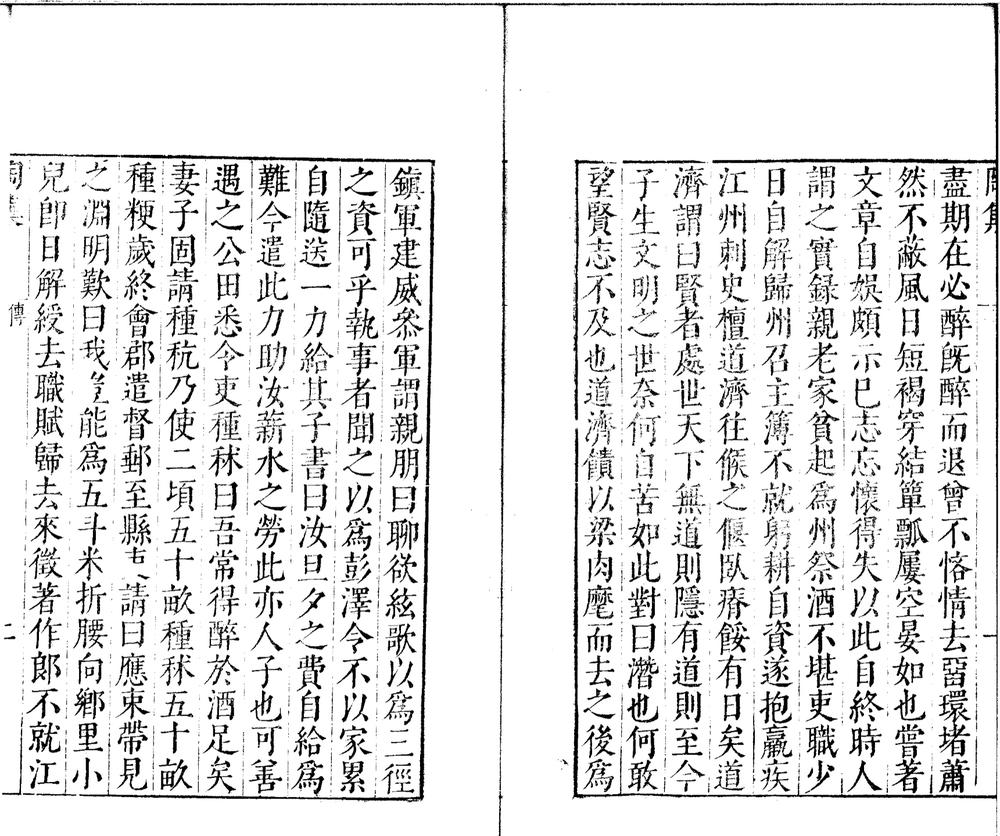 陶集
盡期在必醉旣醉而退曾不悋情去畱環堵蕭
然不蔽風日短褐穿結簞瓢屢空晏如也嘗著
文章自娛頗示己志忘懷得失以此自終時人
謂之實錄親老家貧起爲州祭酒不堪吏職少
日自解歸州召主簿不就躬耕自資遂抱羸疾
江州刺史檀道濟往候之偃臥瘠餒有日矣道
濟謂曰賢者處世天下無道則隱有道則至今
子生文明之世奈何自苦如此對曰潛也何敢
望賢志不及也道濟饋以粱肉麾而去之後爲
鎮軍建威叅軍謂親朋曰聊欲絃歌以爲三徑
之資可乎執事者聞之以爲彭澤令不以家累
自隨送一力給其子書曰汝旦夕之費自給爲
難今遣此力助汝薪水之勞此亦人子也可善
遇之公田悉令吏種秫曰吾常得醉於酒足矣
妻子固請種秔乃使二頃五十畝種秫五十畝
種粳歲終會郡遣督郵至縣吏請曰應束帶見
之淵明歎曰我豈能爲五斗米折腰向鄉里小
兒卽日解綬去職賦歸去來徵著作郎不就江
陶集 傳 二